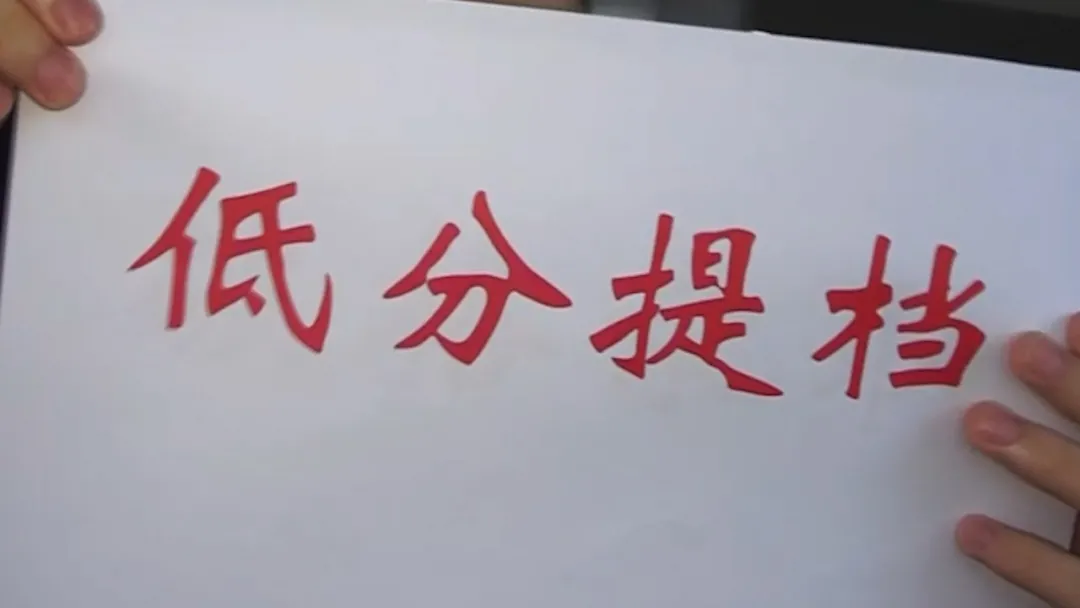 低分提档